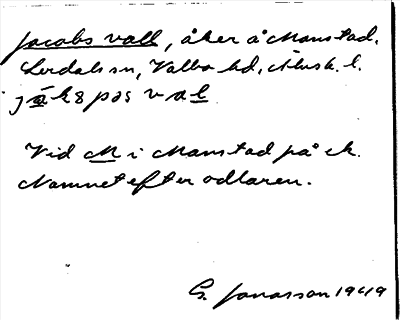 Jacobs vall, åker å Manstad.
Lerdals sn, Valbo hd, Älvsb. l.
jàk8pəs val
Vid M i Manstad på ek.
Namnet efter odlaren.
G. Jonasson 1949